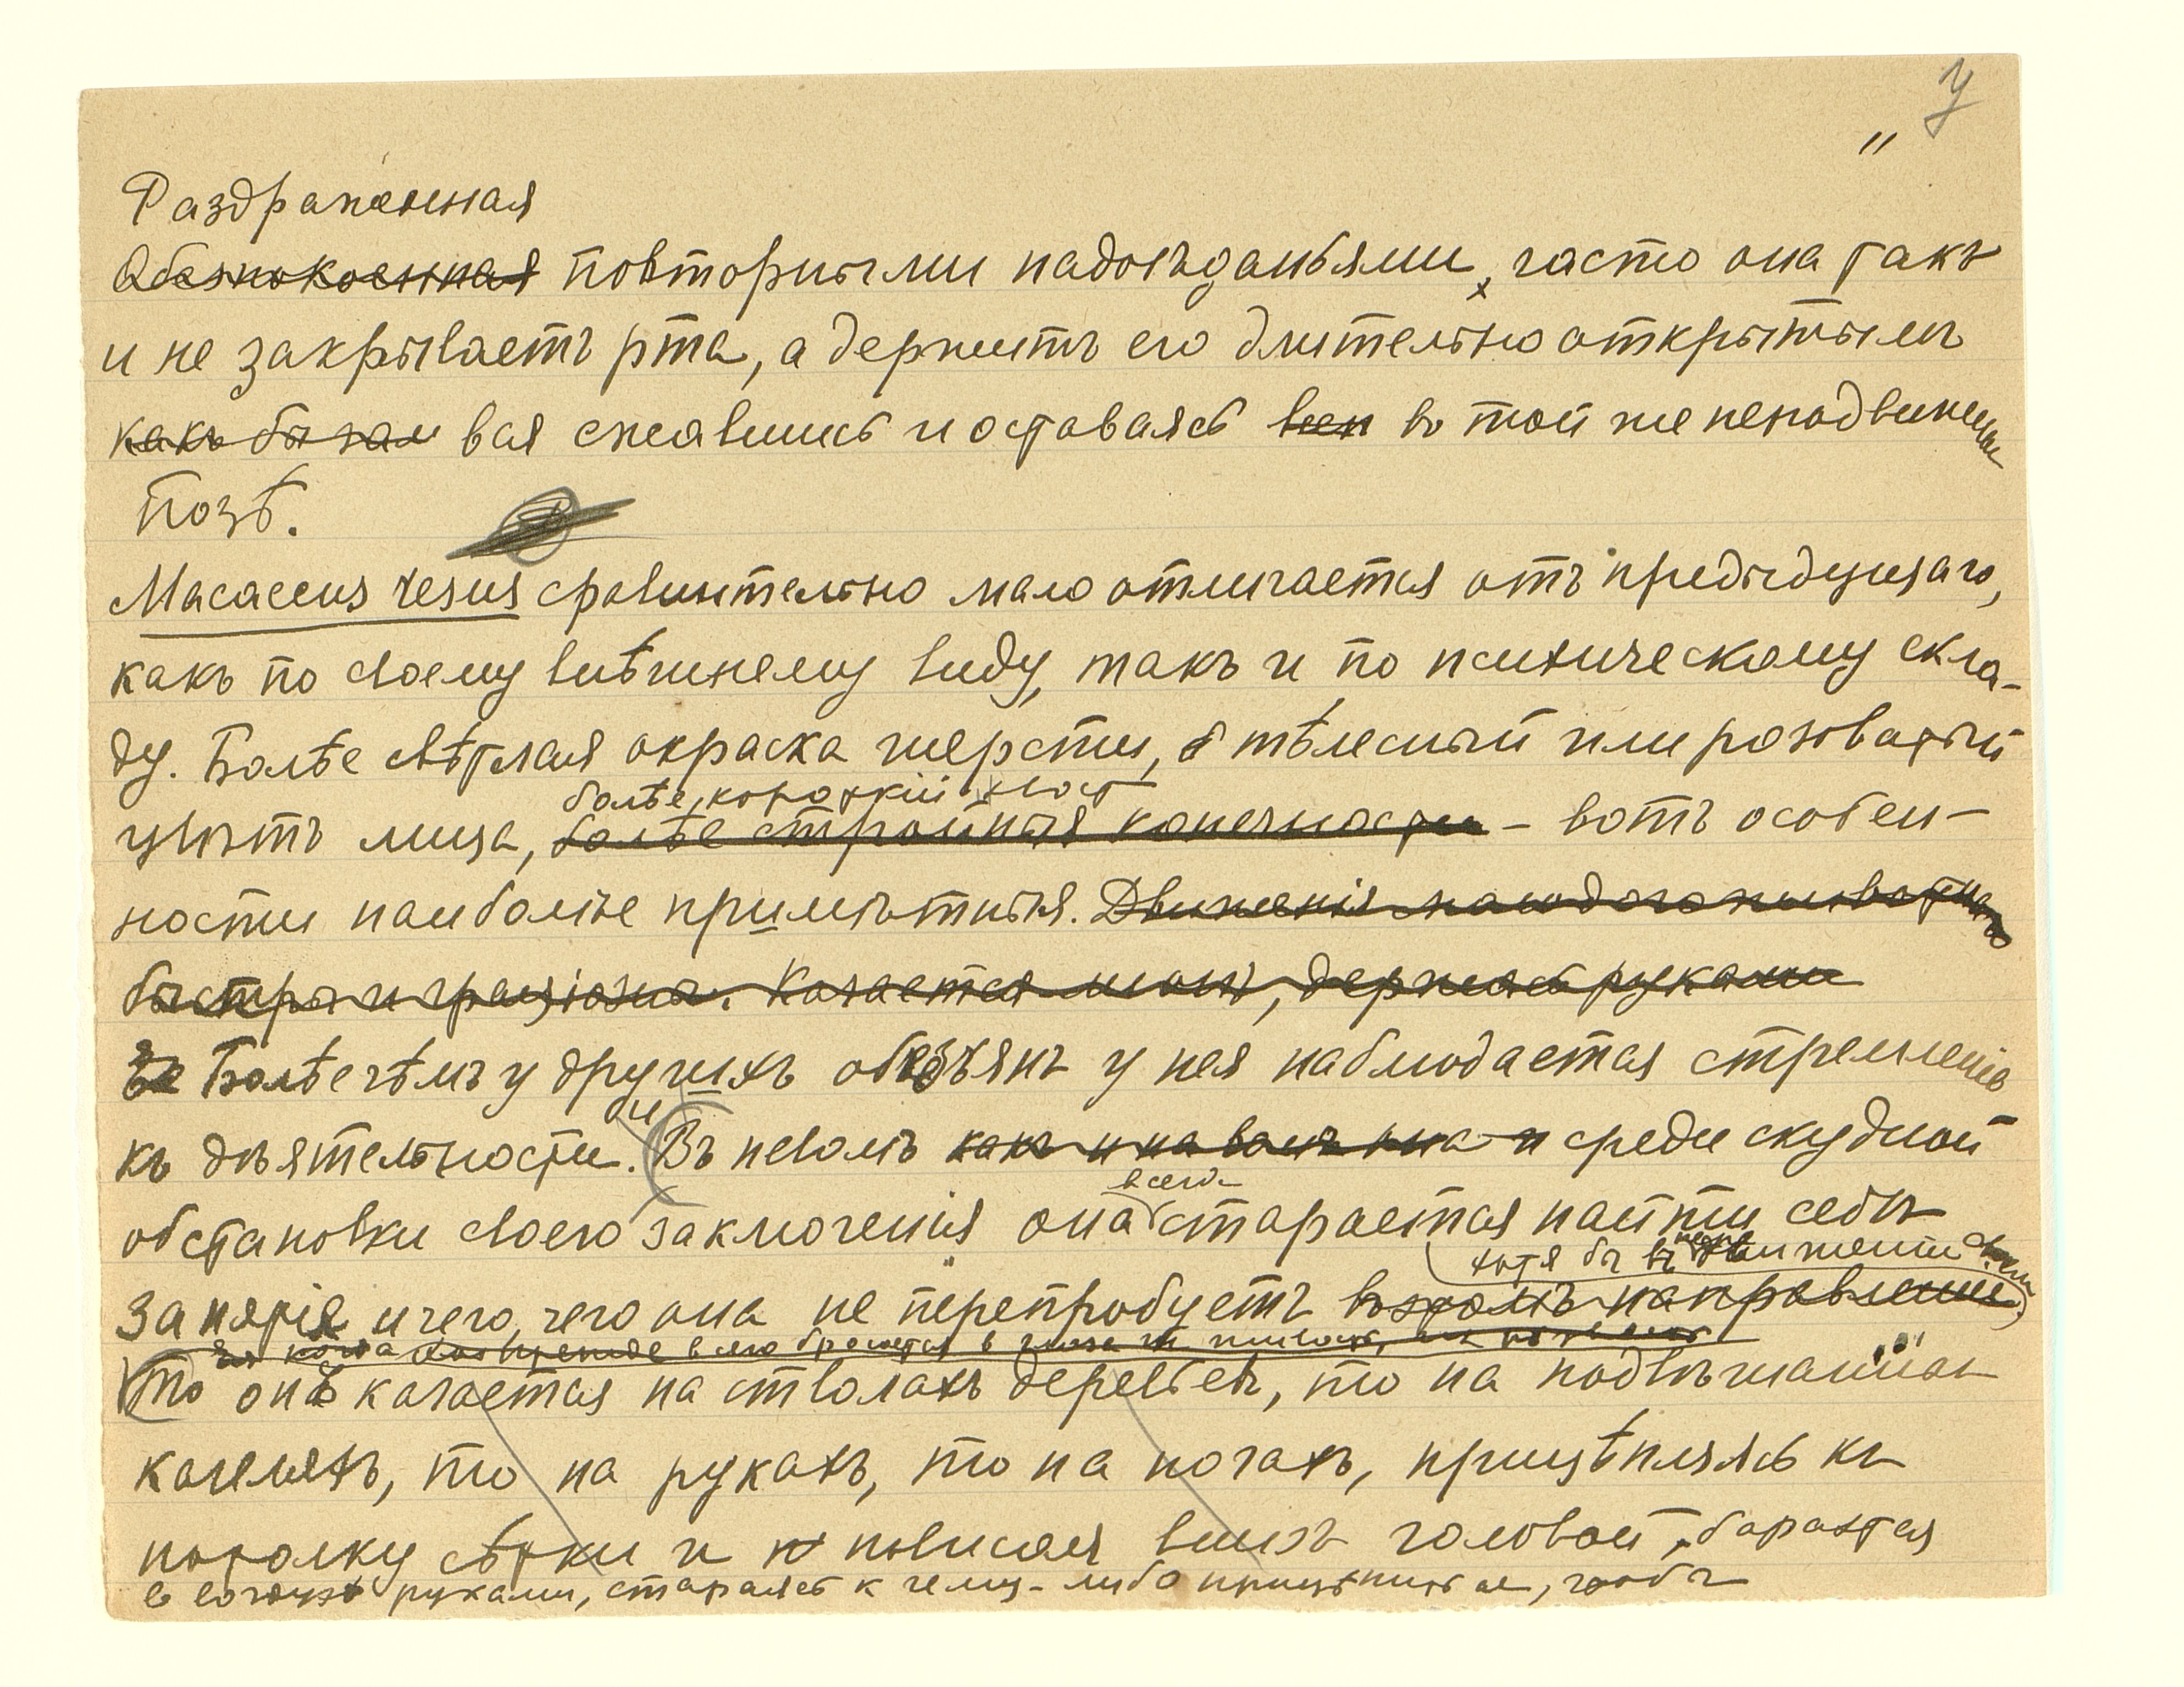 У
"
Раздраженная
Обезпокоенная повторными надоѣданьями, часто она такъ
и не закрываетъ рта, а держитъ его длительно открытымъ
какъ бы вся сжавшись и оставаясь въ той же неподвижной
позѣ.
Macaccus resus сравнительно мало отличается отъ предыдущаго,
какъ по своему внѣшнему виду, такъ и по психическому скла-
ду. Болѣе свѣтлая окраска шерсти, тѣлесный или розоватый
болѣе короткій хвост
цвѣтъ лица, болѣе стройныя конечности - вотъ особен-
ности наиболѣе примѣтныя. Движенія
быстры и граціозны. Кажется мнѣ, держась руками
Болѣе чѣмъ у другихъ обезьянъ у нея наблюдается стремленіе
и
къ дѣятельности. Въ неволѣ какъ и на волѣ она и среди скудной
всегда
обстановки своего заключенія она старается найти себѣ
хотя бы въ движеніи
занятіе и чего, чего она не перепробуетъ въ этомъ направленіи
то она качается на стволахъ деревьевъ, то на подвѣшанныхъ
качеляхъ, то на рукахъ, то на ногахъ, прицѣпляясь къ
потолку сѣтки и повисая внизъ головой, барахтая
в воздухѣ руками, стараясь к чему-либо прицѣпиться, чтобы